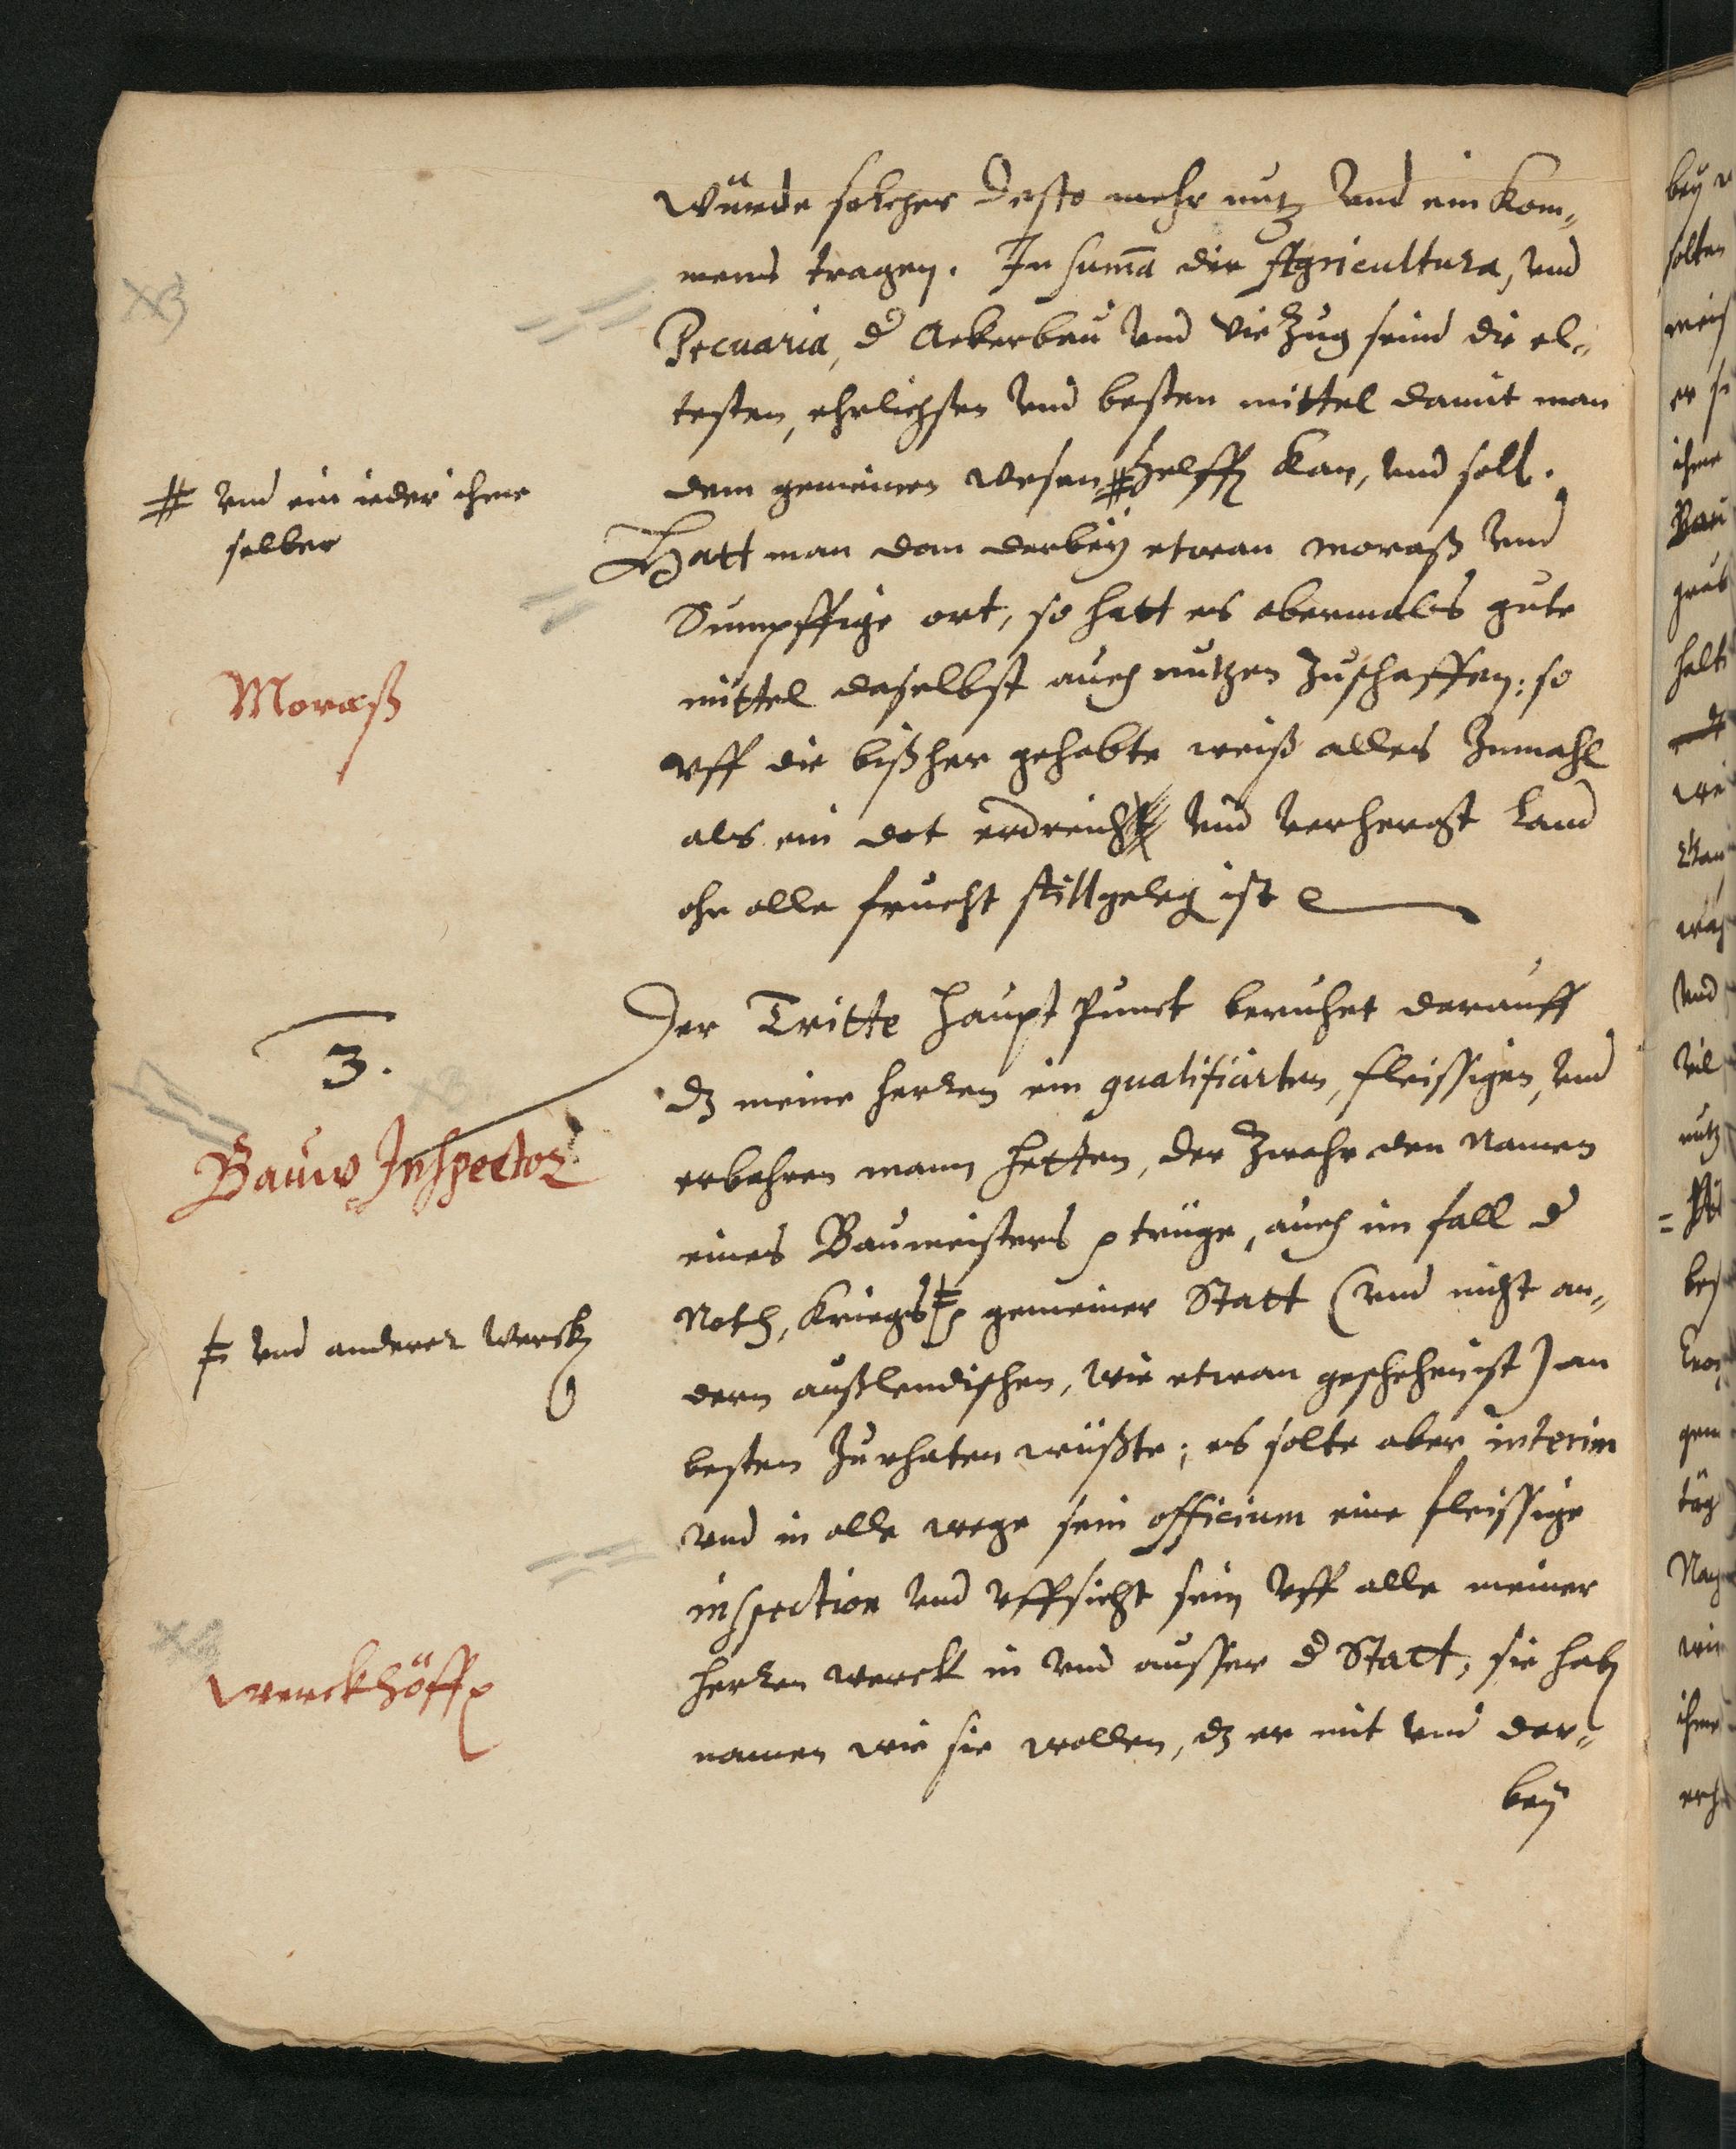 würde solches desto mehr nutz vnd ein kom„
mens tragen. In suma die Agricultura, vnd
Pecuaria, d Ackerbau vnd viezug seind die el„
testen, ehrlichsten vnd besten mittel damit man
dem gemeinen wesen # helffen kan, vnd soll.
# vnd ein ieder ihme
selber
Hatt man dan derbeÿ etwan moraß vnd
Sumpffige ort, so hatt es abermals gute
mittel daselbst auch nutzen zuschaffen: so
Moraß
vff die bißher gehabte weiß alles zumahl
als ein dot erdreich vnd verhergt Land
ohn alle frucht still geleg ist
3.
Der Tritte haupt Punct beruhet derauff
dz meine herren ein qualificirten, fleissigen, vnd
Bauw Inspector
erbahren mann hetten, der zwahr den Namen
eines Baumeisters trüge, auch im fall d
Noth, Kriegs ǂ gemeiner Statt (vnd nicht an„
ǂ vnd anderer werck
dern außlendischen, wie etwan geschehen ist) am
besten zurhaten wüßte; es solte aber interim
vnd in alle wege sein officium eine fleissige
inspection vnd vffsicht sein vff alle meiner
herren werck in vnd ausser d Statt, sie haben
werckhöff
namen wie sie wollen, dz er mit vnd der„
beÿ